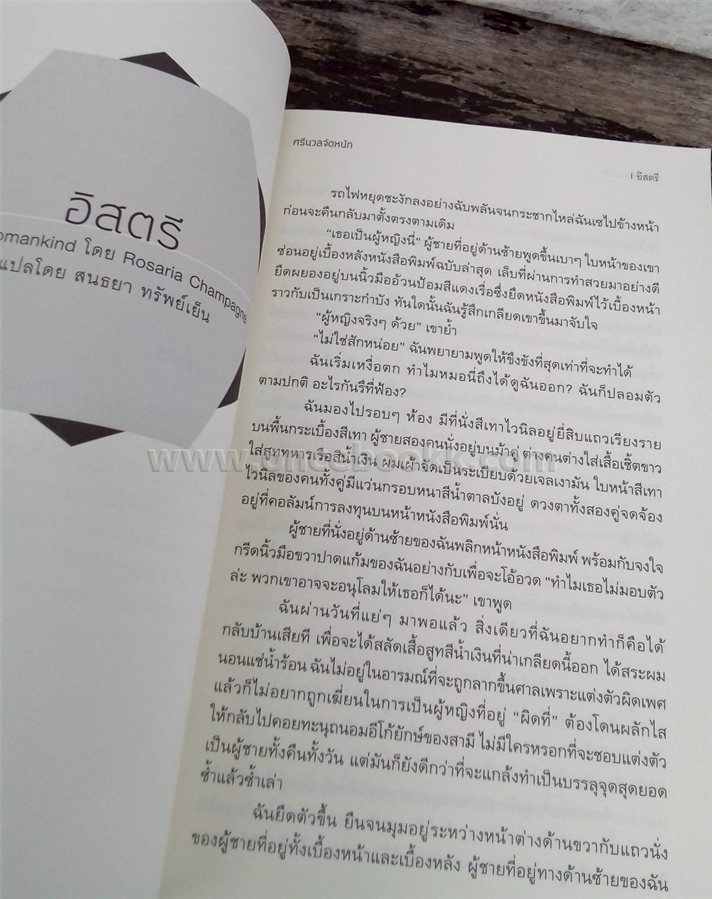 อิสตรี
omankind โดย Rosaria Champagne
แปลโดย สนธยา ทรัพย์เย็น
ศรีนวลจัดหนัก
| อิสตรี
รถไฟหยุดชะงักลงอย่างฉับพลันจนกระชากไหล่ฉันเซไปข้างหน้า
ก่อนจะคืนกลับมาตั้งตรงตามเดิม
“เธอเป็นผู้หญิงนี่” ผู้ชายที่อยู่ด้านซ้ายพูดขึ้นเบาๆ ใบหน้าของเขา
ซ่อนอยู่เบื้องหลังหนังสือพิมพ์ฉบับล่าสุด เล็บที่ผ่านการทำสวยมาอย่างดี
ยึดผยองอยู่บนนิ้วมืออ้วนป้อมสีแดงเรื่อซึ่งยึดหนังสือพิมพ์ไว้เบื้องหน้า
ราวกับเป็นเกราะกำบัง ทันใดนั้นฉันรู้สึกเกลียดเขาขึ้นมาจับใจ
“ผู้หญิงจริงๆ ด้วย” เขาย้ำ
“ไม่ใช่สักหน่อย” ฉันพยายามพูดให้ขึงขังที่สุดเท่าที่จะทำได้
ฉันเริ่มเหงื่อตก ทำไมหมอนี่ถึงได้ดูฉันออก? ฉันก็ปลอมตัว
ตามปกติ อะไรกันรึที่ฟ้อง?
ฉันมองไปรอบๆ ห้อง มีที่นั่งสีเทาไวนิลอยู่ยี่สิบแถวเรียงราย
บนพื้นกระเบื้องสีเทา ผู้ชายสองคนนั่งอยู่บนม้าคู่ ต่างคนต่างใส่เสื้อเชิ้ตขาว
www.oncebook.com
ใส่สูททหารเรือสีน้ำเงิน ผมเผ้าจัดเป็นระเบียบด้วยเจลเงามัน ใบหน้าสีเทา
ไวนิลของคนทั้งคู่มีแว่นกรอบหนาสีน้ำตาลบังอยู่ ดวงตาทั้งสองคู่จดจ้อง
อยู่ที่คอลัมน์การลงทุนบนหน้าหนังสือพิมพ์นั่น
ผู้ชายที่นั่งอยู่ด้านซ้ายของฉันพลิกหน้าหนังสือพิมพ์ พร้อมกับจงใจ
กรีดนิ้วมือขวาปาดแก้มของฉันอย่างกับเพื่อจะโอ้อวด “ทำไมเธอไม่มอบตัว
ล่ะ พวกเขาอาจจะอนุโลมให้เธอก็ได้นะ” เขาพูด
ฉันผ่านวันที่แย่ๆ มาพอแล้ว สิ่งเดียวที่ฉันอยากทำก็คือได้
กลับบ้านเสียที เพื่อจะได้สลัดเสื้อสูทสีน้ำเงินที่น่าเกลียดนี้ออก ได้สระผม
นอนแช่น้ำร้อน ฉันไม่อยู่ในอารมณ์ที่จะถูกลากขึ้นศาลเพราะแต่งตัวผิดเพศ
แล้วก็ไม่อยากถูกเฆี่ยนในการเป็นผู้หญิงที่อยู่ “ผิดที่” ต้องโดนผลักไส
ให้กลับไปคอยทะนุถนอมอีโก้ยักษ์ของสามี ไม่มีใครหรอกที่จะชอบแต่งตัว
เป็นผู้ชายทั้งคืนทั้งวัน แต่มันก็ยังดีกว่าที่จะแกล้งทำเป็นบรรลุจุดสุดยอด
ซ้ำแล้วซ้ำเล่า
ฉันยืดตัวขึ้น ยืนจนมุมอยู่ระหว่างหน้าต่างด้านขวากับแถวนั่ง
ของผู้ชายที่อยู่ทั้งเบื้องหน้าและเบื้องหลัง ผู้ชายที่อยู่ทางด้านซ้ายของฉัน